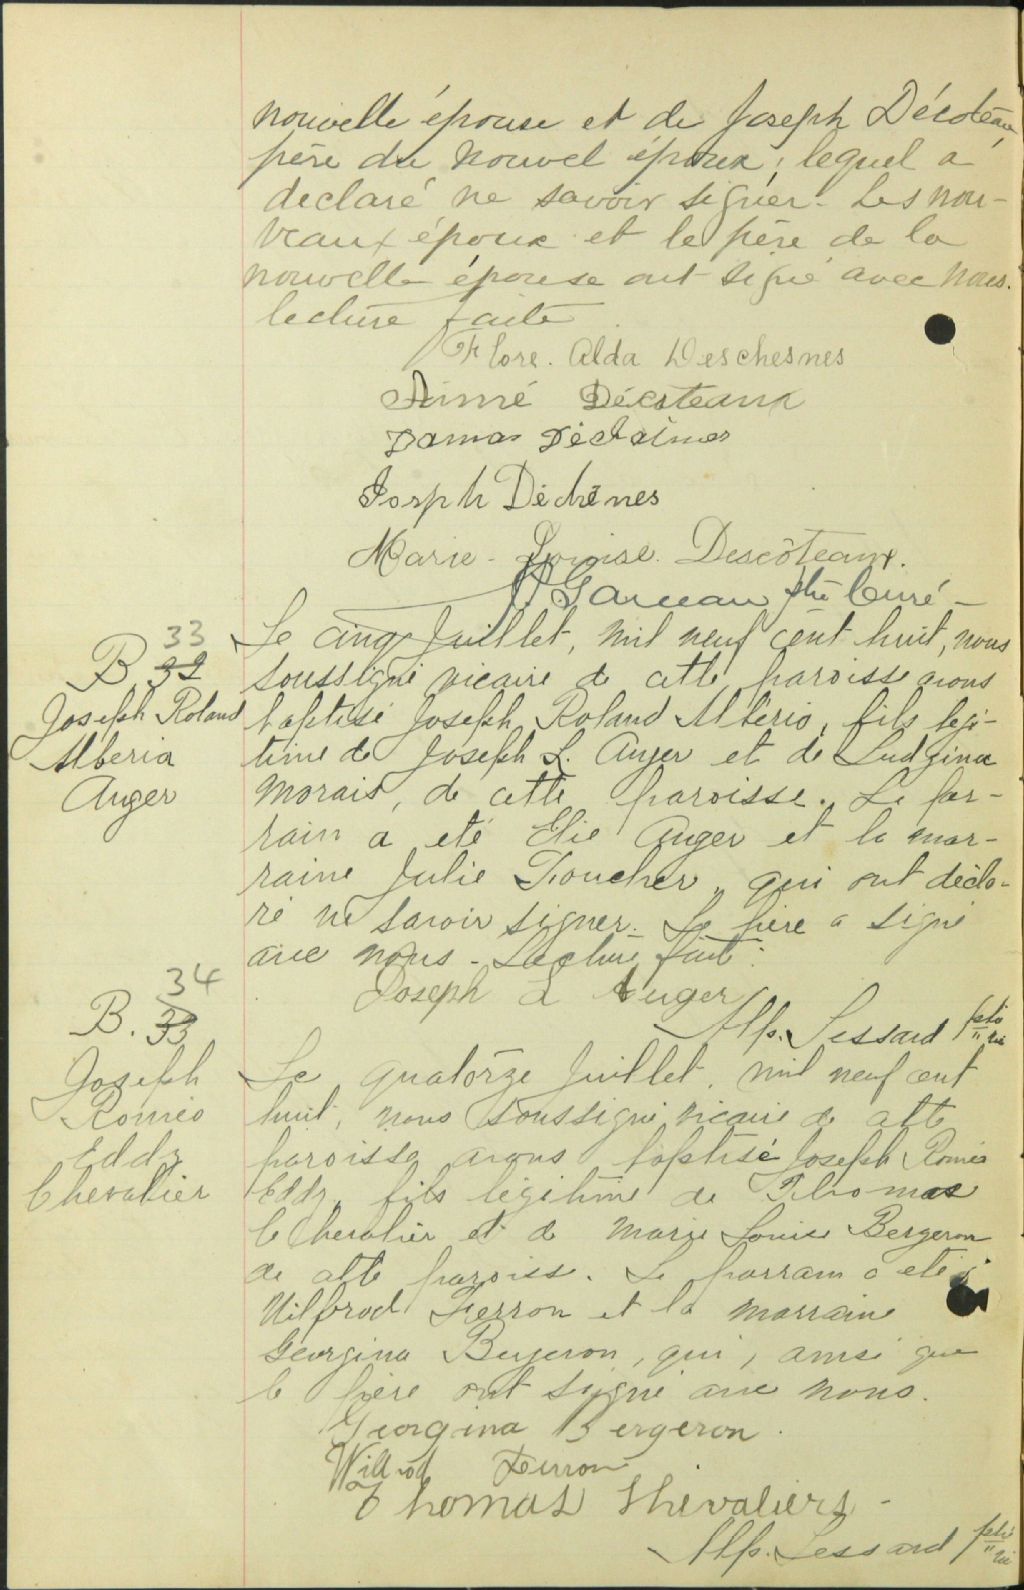 nouvelle épouse et de Joseph Décoteau,
père du nouvel époux, lequel a
declaré ne savoir signer. Les nou-
veaux époux et le père de la
nouvelle épouse ont signé avec nous.
lecture faite
Flore. Alda Deschesnes
Aimé Décoteaux
Damas Déchaînes
Joseph Déchênes
Marie-Louise Descôteaux.
Garceau ptre Curé-
B 33
32
Joseph Roland
Alberia
Auger
Le cinq Juillet, mil neuf cent huit, nous
soussigné vicaire de cette paroisse avons
baptisé Joseph Roland Albério, fils légi-
time de Joseph L. Auger et de Ludgina
Morais, de cette paroisse. Le par-
rain a eté Elie Auger et la mar-
raine Julie Foucher, qui ont décla-
ré ne savoir signer. Le père a signé
avec nous - Lecture faite.
Joseph L Auger
Alp. Lessard ptre
vic
B. 34
33
Joseph
Roméo
Eddy
Chevalier
Le quatorze Juillet, mil neuf cent
huit, nous soussigné vicaire de cette
paroisse avons baptisé Joseph Roméo
Eddy, fils légitime de Thomas
le Chevalier et de Marie Louise Bergeron
de cette paroisse. Le parrain a eté
Wilfrod Ferron et la marraine
Georgina Bergeron, qui, ainsi que
le père ont signé avec nous.
Georgina Bergeron.
Wilfrod Ferron
Thomas Shevaliers -
Alp. Lessard ptre
vic